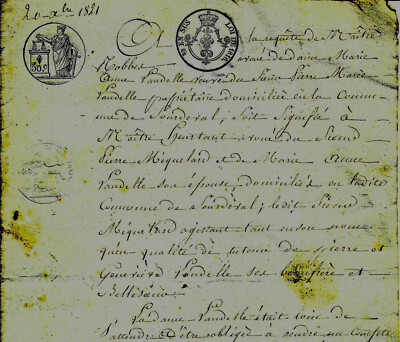 20 - Xbre 1821
A la requête de Maître
Nobbes avoué de dame Marie
Anne Vaudelle veuve du Sieur Pierre Marie
Vaudelle propriétaire domiciliée en la Commu-
-ne de Sourdeval; soit Signifié à
Maître avoué du Sieur
Pierre Miquelard et de Marie Anne
Vaudelle son épouse, domiciliés en ladite
Commune de Sourdeval; ledit Sieur
Miquelard agissant tant en son nom
qu'en qualité de tuteur de pierre et
Geneviève Vaudelle ses beaufrère et
Bellesoeur.
La dame Vaudelle était loin de
s'attendre et être obligée à rendre un Compte
50 c.
LOI DE 1816